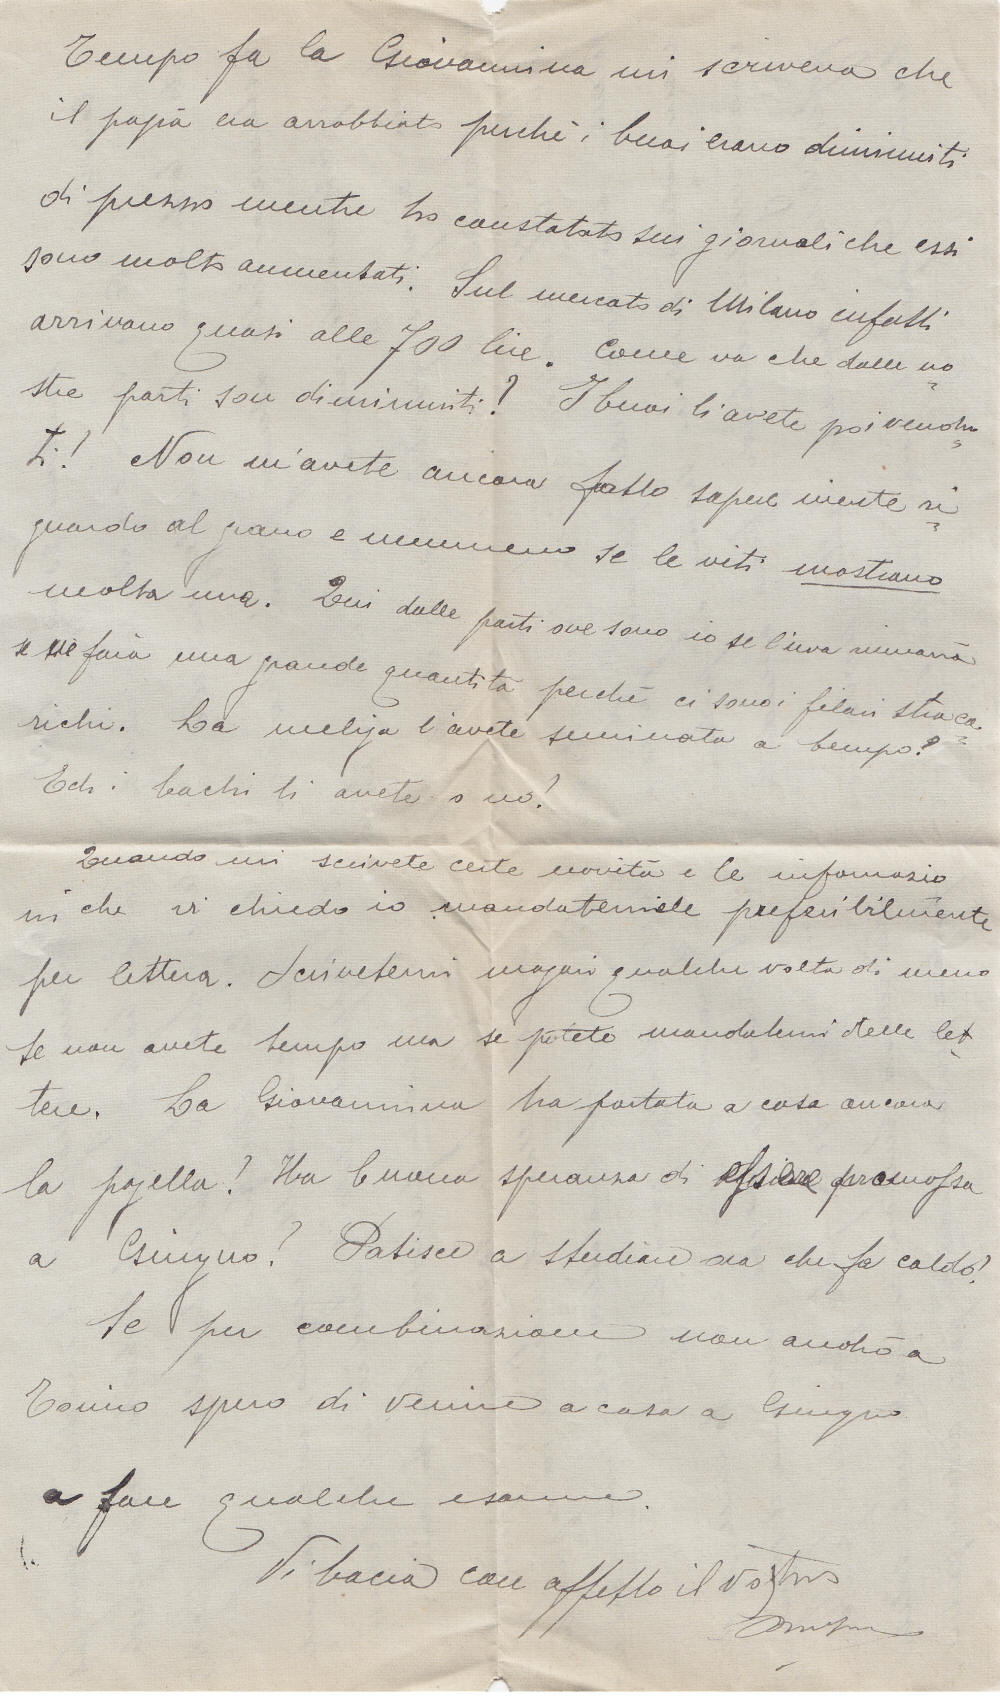 Tempo fa la Giovannina mi scriveva che
il papà era arrabbiato perchè i buoi erano diminuiti
di prezzo mentre ho constatato sui giornali che essi
sono molto aumentati. Sul mercato di Milano infatti
arrivano quasi alle 700 lire. Come va che dalle no
stre parti son diminuiti? I buoi li avete poi vendu
ti! Non m'avete ancora fatto sapere niente ri
guardo al grano e nemmeno se le viti mostrano
molta uva. Qui dalle parti ove sono io se l'uva rimarrà
se ne farà una grande quantità perchè ci sono i filari straca
richi. La meliga l'avete seminata a tempo?
Ed i bachi li avete o no!
Quando mi scrivete certe novità e le informazio
ni che vi chiedo io mandatemele preferibilmente
per lettera. Scrivetemi magari qualche volta di meno
se non avete tempo ma se potete mandatemi delle let
tere. La Giovannina ha portata a casa ancora
la pagella? Ha buona speranza di essere promossa
a Giugno? Patisce a studiare ora che fa caldo?
Se per combinazione non andrò a
Torino spero di venire a casa a Giugno
a fare qualche esame.
Vi bacia con affetto il vostro